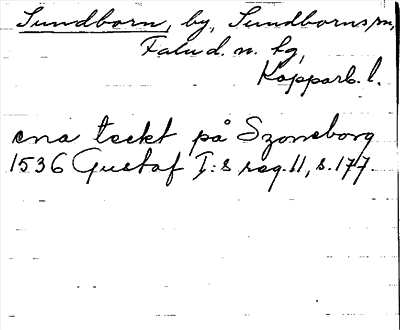 Sundborn, by, Sundborns sn,
Falu d. n. tg,
Kopparb. l.
ena teckt på Szoneborg
1536 Gustaf I:s reg. 11, s. 177.